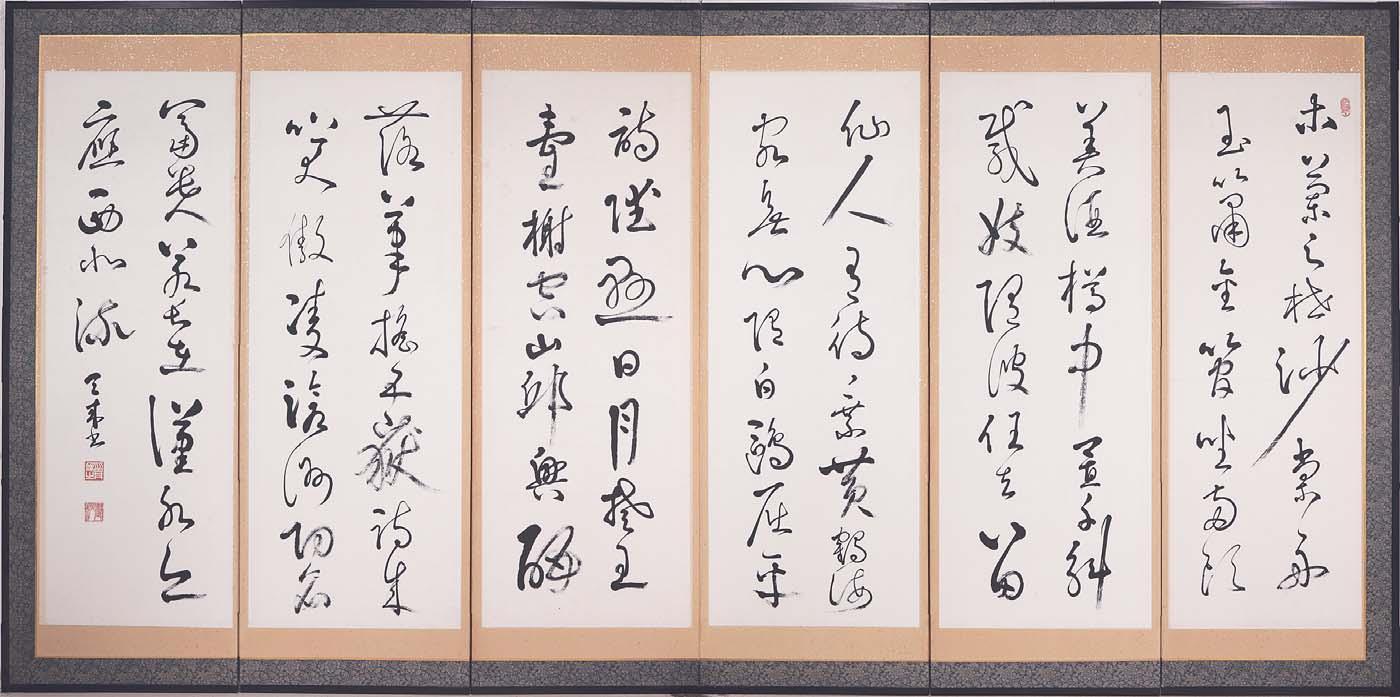 木蘭之枻沙棠舟
玉簫金管坐兩頭
美酒樽中置千斛
載妓隨波任去留
仙人有待乘黃鶴海
客無心隨白鷗屈平
詞賦懸日月楚王
臺榭空山邱興酣
落筆搖五嶽詩成
笑傲凌滄洲功名
富貴若長在漢水亦
應西北流